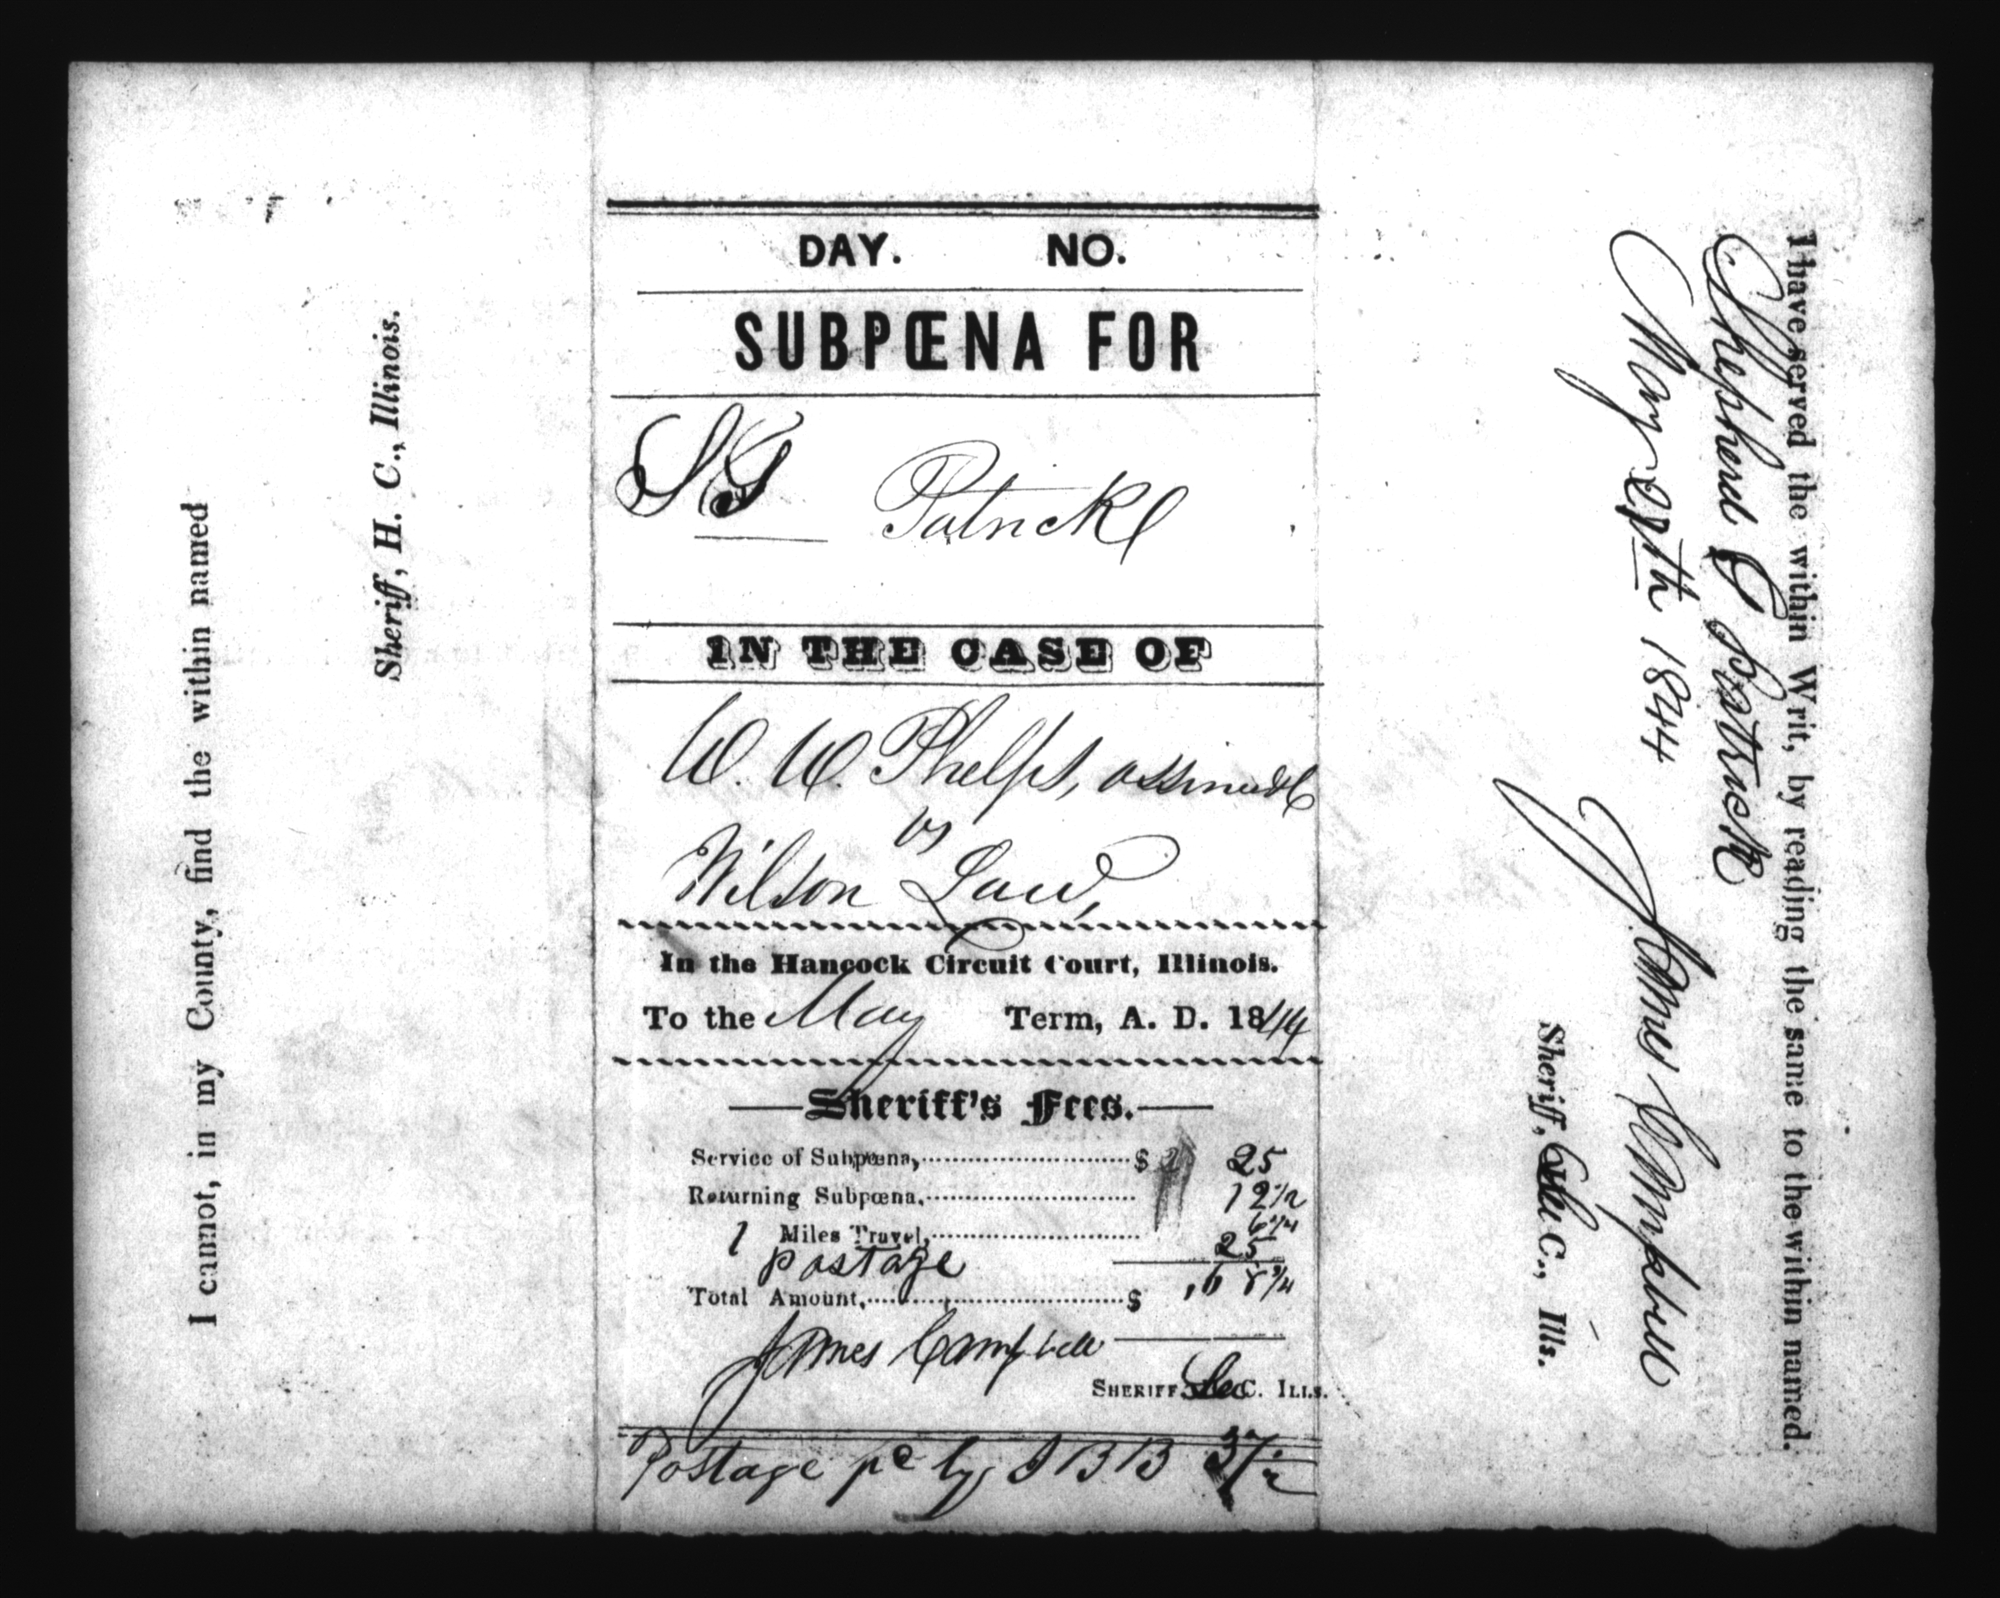 I cannot, in my County, find the within named
Sheriff, H. C., Illinois.
DAY. NO.
SUBPŒNA FOR
S G Patrick
IN THE CASE OF
W. W. Phelps,
vs
Wilson Law,
In the Hancock Circuit Court, Illinois.
To the May Term, A. D. 1844
Sheriff's Fees.
Service of Subpœna, $ 25
Returning Subpœna. 12 1/2
1 Miles Travel, 6 1/4
postage 25
Total Amount, $ ,68 3/4
James Campbell
SHERIFF Lee C. ILLS.
Postage pd by 37 1/2
I have served the within Writ, by reading the same to the within named.
Shepherd G Patrick
May 1844
James Campbell
Sheriff, Lee C., Ills.